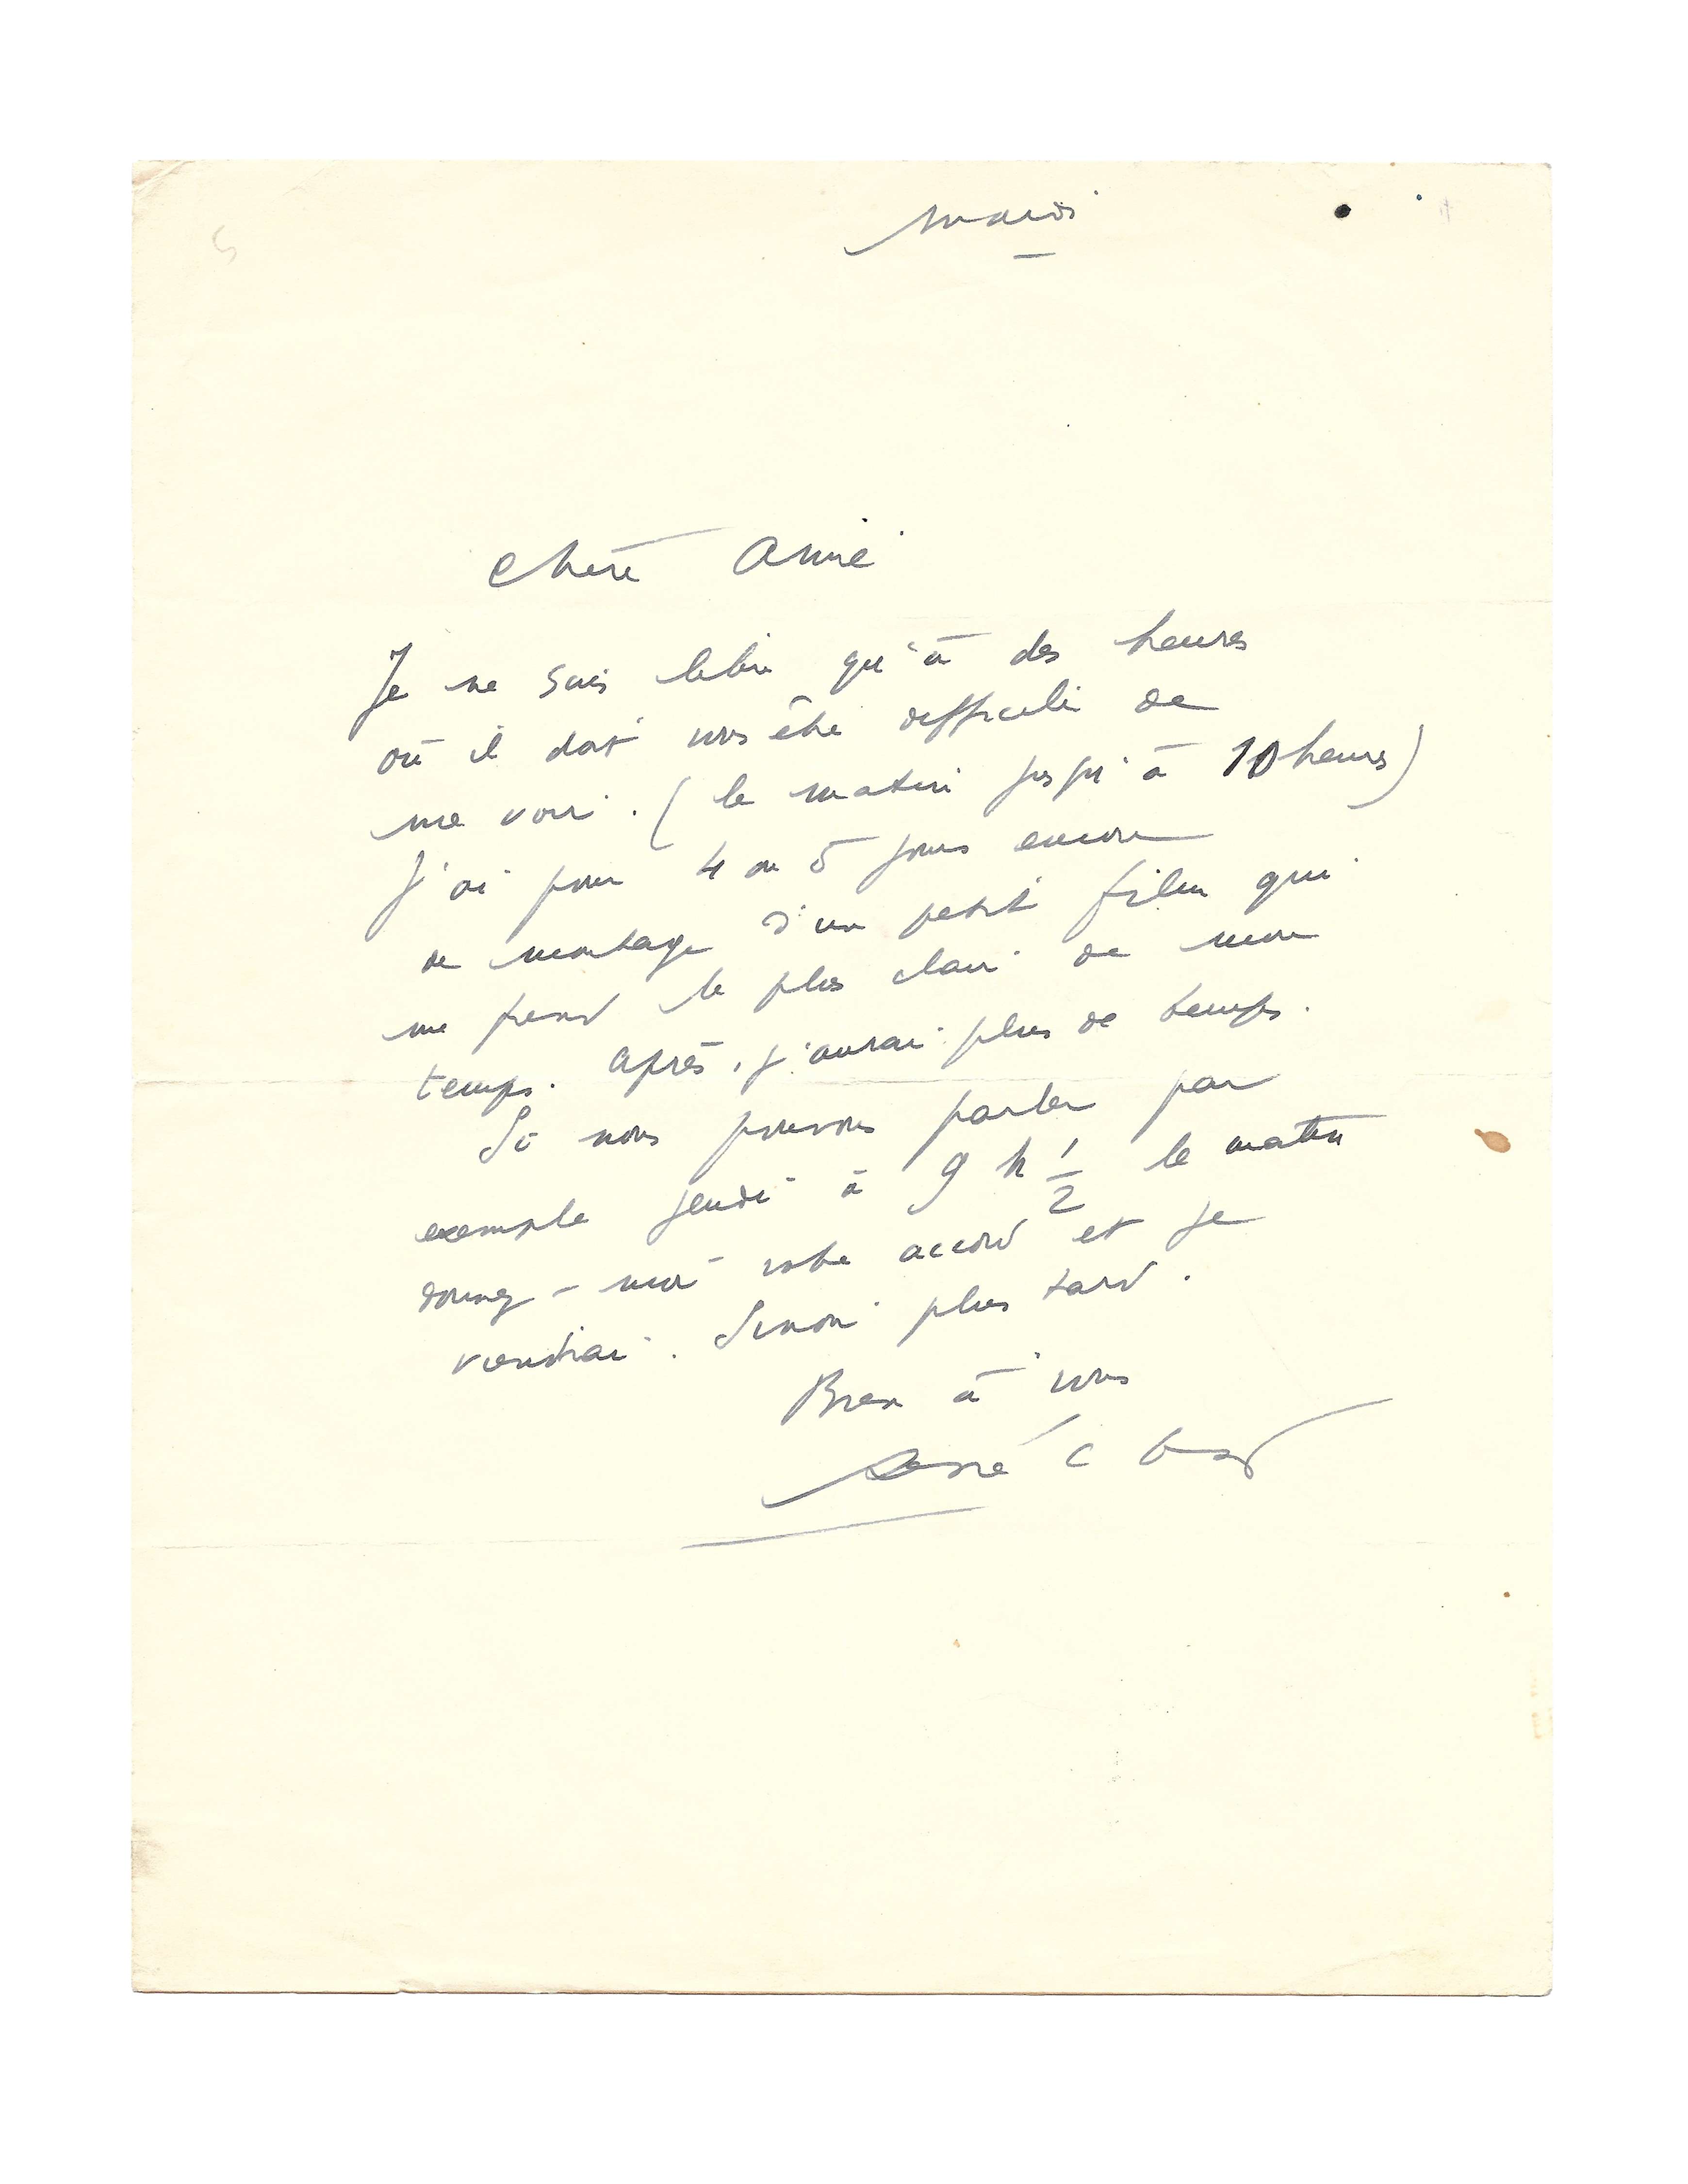 mardi
Chère Amie
Je ne suis libre qu'à des heures
où il doit vous être difficile de
me voir. (le matin jusqu'à 10 heures)
J'ai pour 4 ou 5 jours encore
de montage d'un petit film qui
me prend le plus clair de mon
temps. Après, j'aurai plus de temps.
Si nous pouvons parler par
exemple jeudi à 9 h 1/2 le matin
donnez-moi votre accord et je
viendrai. Sinon plus tard.
Bien à vous
René